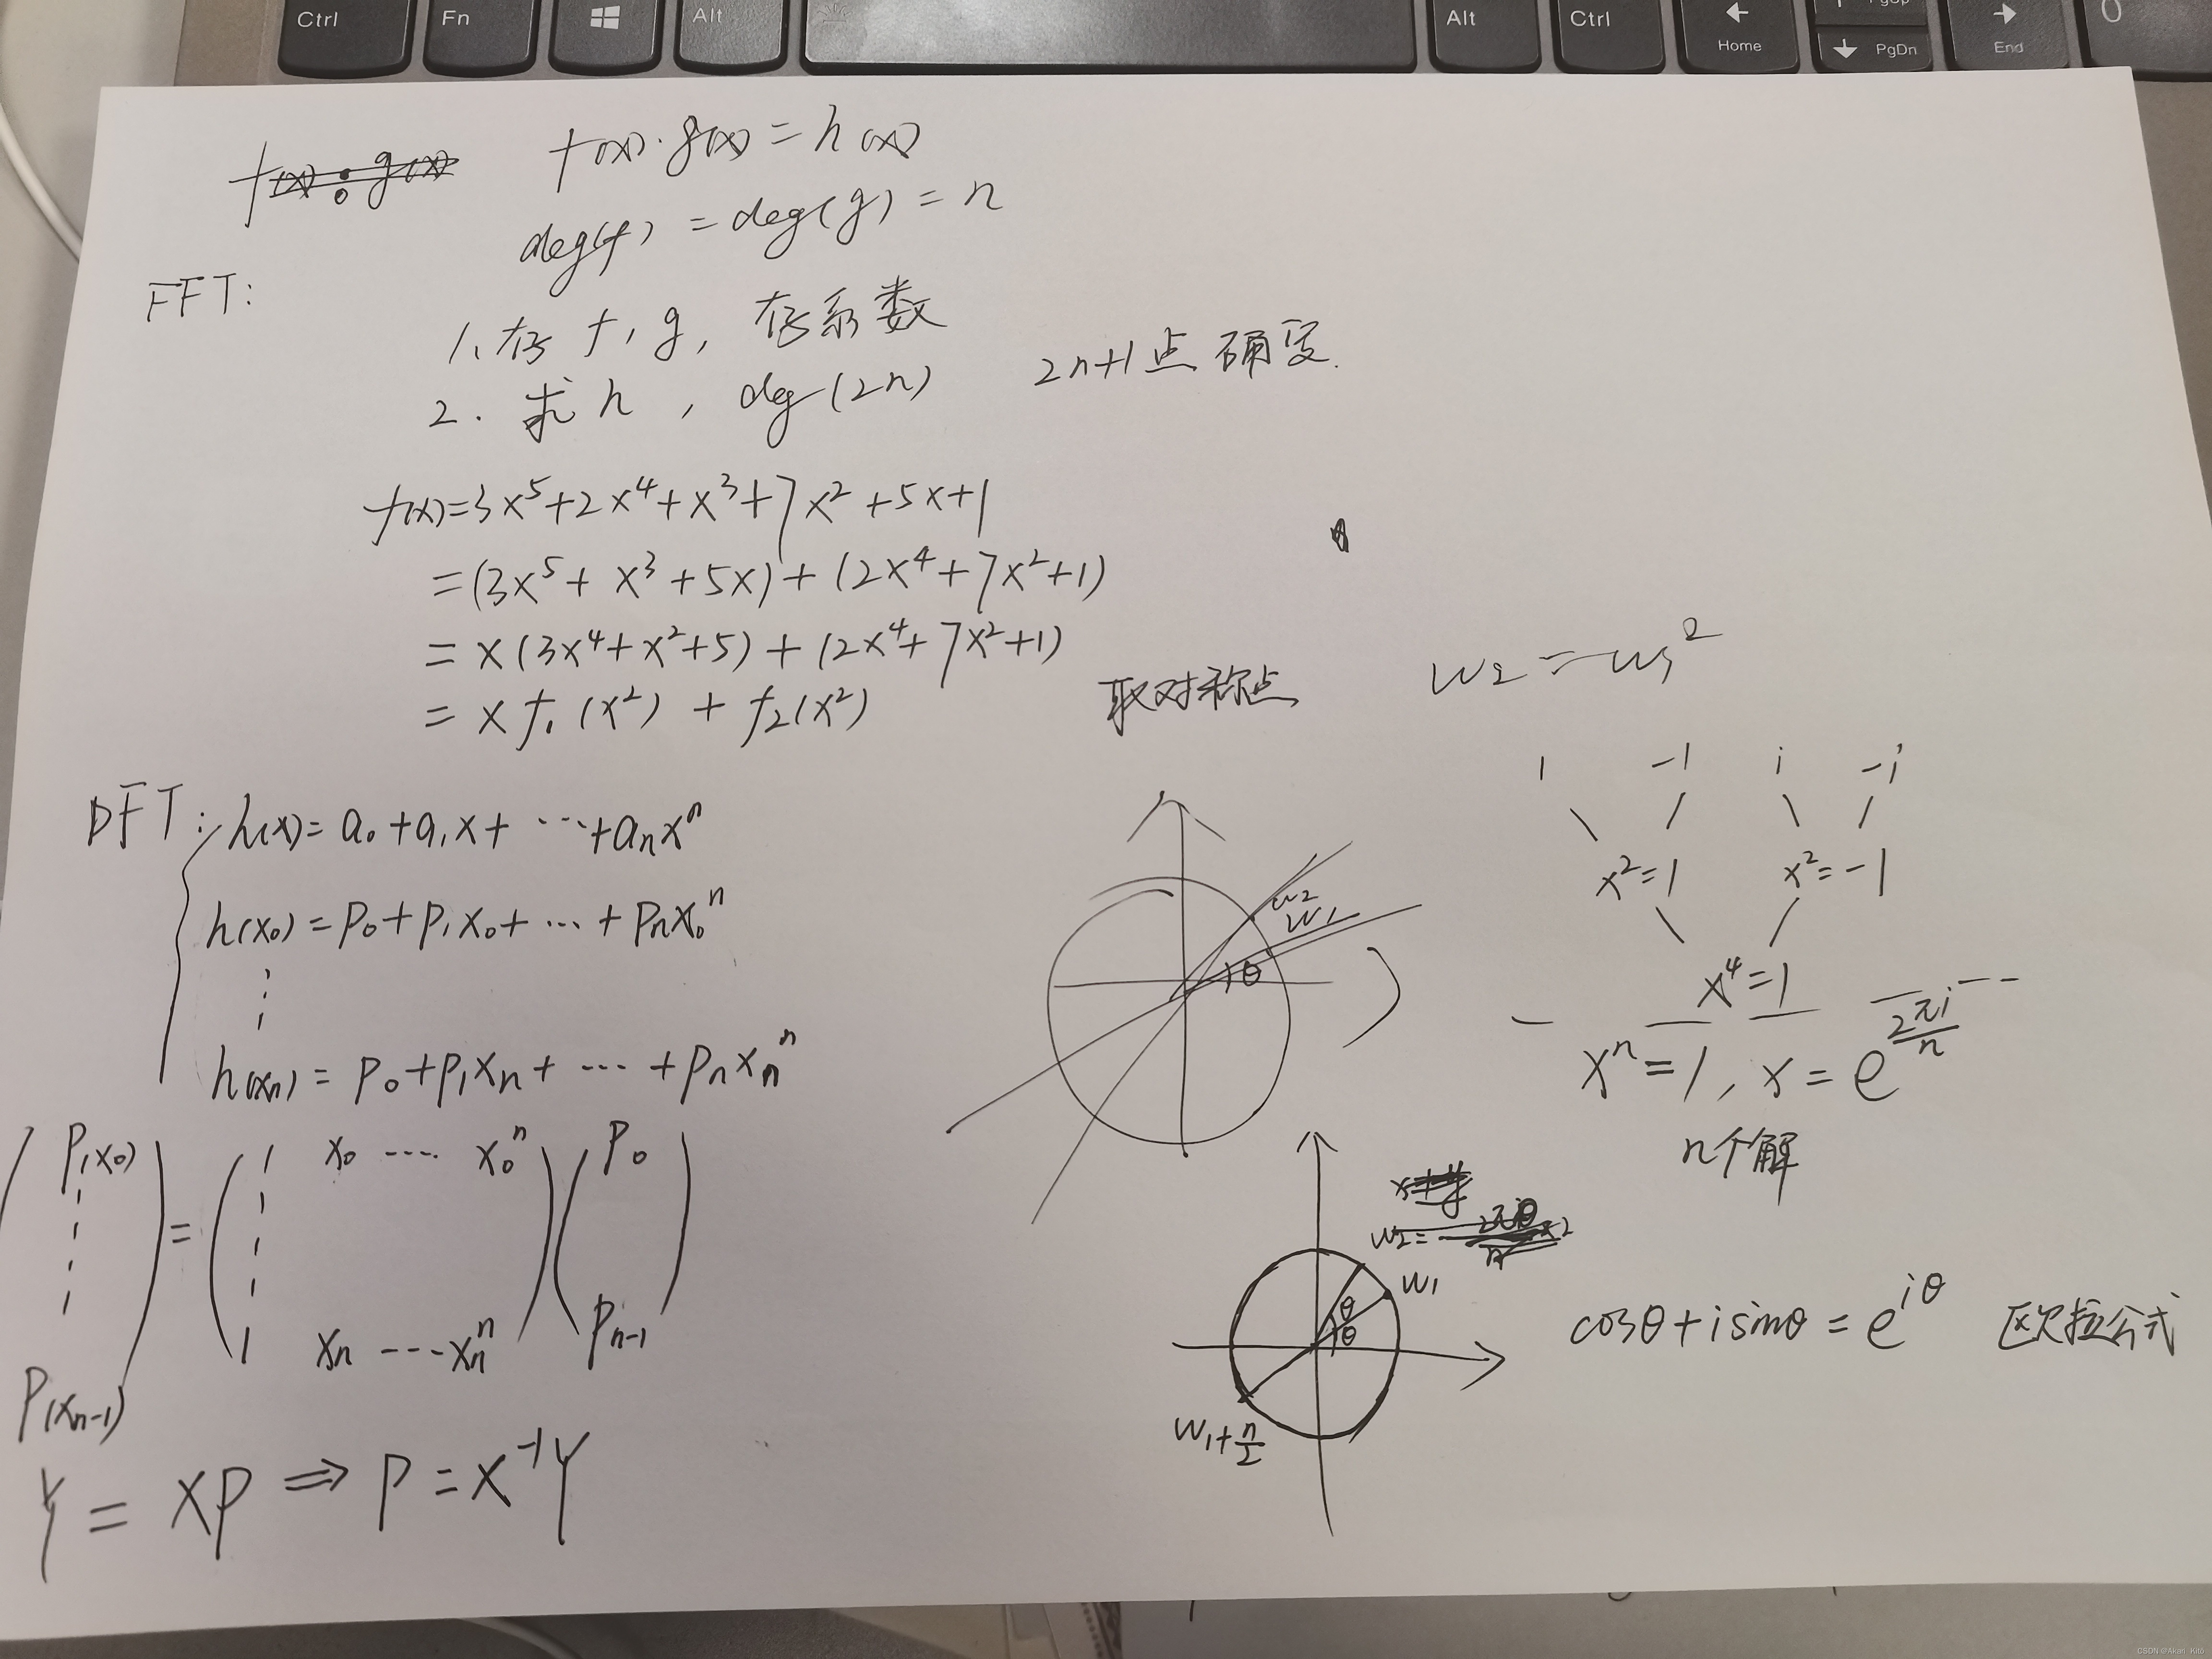 Ctrl Fn Alt Alt Ctrl Home PgUp PgDn End 0
f(x) · g(x)
f(x)·g(x)=h(x)
deg(f) = deg(g) = n
FFT:
1、存 f, g, 存系数
2. 求 h , deg(2n) 2n+1点确定.
f(x)=3x⁵+2x⁴+x³+7x²+5x+1
=(3x⁵+x³+5x)+(2x⁴+7x²+1)
=x(3x⁴+x²+5)+(2x⁴+7x²+1)
=xf₁(x²)+f₂(x²)
取对称点
w₂=w₁²
1 -1 i -i
x²=1 x²=-1
x⁴=1
xⁿ=1, x=e^(2πi/n)
n个解
DFT: h(x)=a₀+a₁x+⋯+aₙxⁿ
h(x₀)=p₀+p₁x₀+⋯+pₙx₀ⁿ
⋮
h(xₙ)=p₀+p₁xₙ+⋯+pₙxₙⁿ
w₂
w₁
θ
P(x₀) = 1 x₀ ⋯ x₀ⁿ p₀
⋮
P(xₙ₋₁) 1 xₙ ⋯ xₙⁿ pₙ₋₁
Y=XP⇒P=X⁻¹Y
w₂=
w₁
θ
θ
w₁₊ₙ/₂
cosθ+isinθ=e^(iθ) 欧拉公式
CSDN @Akari_Kitō